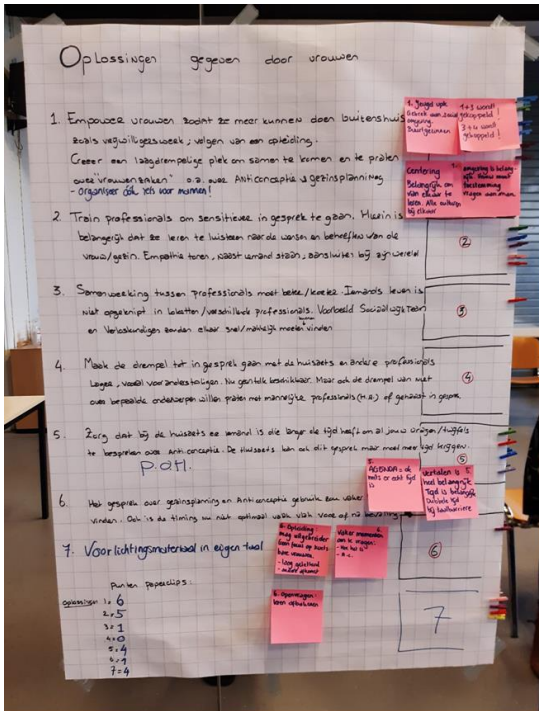 Oplossingen gegeven door vrouwen
1. Empower vrouwen zodat ze meer kunnen doen buitenshuis
zoals vrijwilligerswerk, volgen van een opleiding.
Creëer een laagdrempelige plek om samen te komen en te praten
over "vrouwenzaken" o.a. over Anticonceptie & gezinsplanning
- organiseer óók iets voor mannen!
2. Train professionals om sensitiever in gesprek te gaan. Hierin is
belangrijk dat ze leren te luisteren naar de wensen en behoeften van de
vrouw/gezin. Empathie tonen, naast iemand staan, aansluiten bij zijn wereld
3. Samenwerking tussen professionals moet beter/korter. Iemands leven is
niet opgeknipt in loketten/verschillende professionals. Voorbeeld Sociaal wijkteam
en Verloskundigen zouden elkaar snel/makkelijk moeten kunnen vinden.
4. Maak de drempel tot in gesprek gaan met de huisarts en andere professionals
lager, vooral voor anderstaligen. Maar ook de drempel van niet
over bepaalde onderwerpen willen praten met mannelijke professionals (H.A.) of gehaast in gesprek
5. Zorg dat bij de huisarts er iemand is die langer de tijd heeft om al jouw vragen/twijfels
te bespreken over Anticonceptie. De huisarts kan ook dit gesprek maar moet meer tijd krijgen.
P.O.H.
6. Het gesprek over gezinsplanning en Anticonceptie vaker
vinden. Ook is de timing nu niet optimaal vlak voor of na bevalling
7. Voorlichtingsmateriaal in eigen taal
Punten paperclips:
oplossing 1 = 6
2 = 5
3 = 1
4 = 0
5 = 4
6 = 1
7 = 4
1. Jeugd vpk
Gebrek aan sociale
omgeving.
Buurtgezinnen
1+3 wordt
gekoppeld!
3+4 wordt
gekoppeld!
Centering
Belangrijk om
van elkaar te
leren. Alle culturen
bij elkaar
omgeving is belang-
rijk. Vrouw moet
toestemming
vragen aan man.
2
3
4
5
AGENDA = de
arts er echt tijd
is
vertalen is 5
heel belangrijk
Tijd is belangrijk
Dubbele tijd
bij taalbarriere
6. Opleiding
mag uitgebreider
- laag geletterd
- andere afkomst
Vaker momenten
om te vragen:
6
6. Openvragen
leren
7